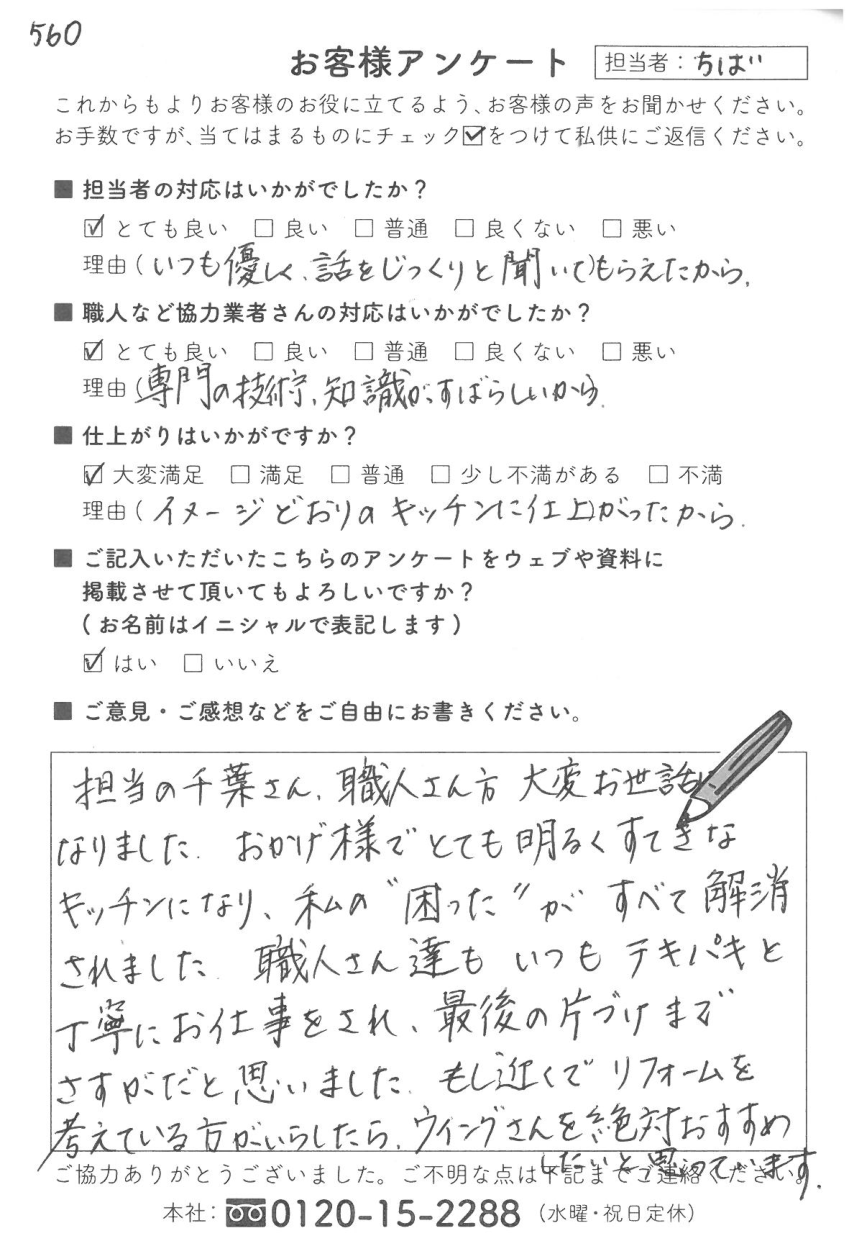 560
お客様アンケート 担当者：ちば
これからもよりお客様のお役に立てるよう、お客様の声をお聞かせください。
お手数ですが、当てはまるものにチェック☑をつけて私供にご返信ください。
■ 担当者の対応はいかがでしたか？
☑ とても良い □ 良い □ 普通 □ 良くない □ 悪い
理由（いつも優しく、話をじっくりと聞いて）もらえたから。
■ 職人など協力業者さんの対応はいかがでしたか？
☑ とても良い □ 良い □ 普通 □ 良くない □ 悪い
理由（専門の技術、知識が、すばらしいから。
■ 仕上がりはいかがですか？
☑ 大変満足 □ 満足 □ 普通 □ 少し不満がある □ 不満
理由（イメージどおりのキッチンに仕上）がったから。
■ ご記入いただいたこちらのアンケートをウェブや資料に
掲載させて頂いてもよろしいですか？
（お名前はイニシャルで表記します）
☑ はい □ いいえ
■ ご意見・ご感想などをご自由にお書きください。
担当の千葉さん、職人さん方 大変お世話に
なりました。おかげ様でとても明るくすてきな
キッチンになり、私の〝困った〟が すべて解消
されました。職人さん達も いつも テキパキと
丁寧にお仕事をされ、最後の片づけまで
さすがだと思いました。もし近くで リフォームを
考えている方がいらしたら、ウイングさんを絶対おすすめ
したいと思っています。
ご協力ありがとうございました。ご不明な点は下記までご連絡ください。
本社： 0120-15-2288 （水曜・祝日定休）